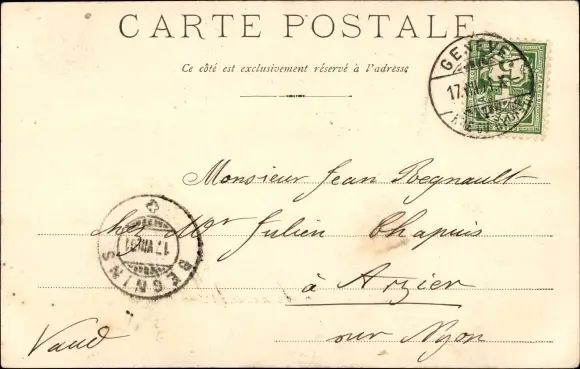 CARTE POSTALE
Ce côté est exclusivement réservé à l'adresse
GENÈVE
17.VII.
RUE DU
Monsieur Jean Regnault
chez Mr Julien Chapuis
à Arzier
sur Nyon
Vaud
BEGNINS
17 VII